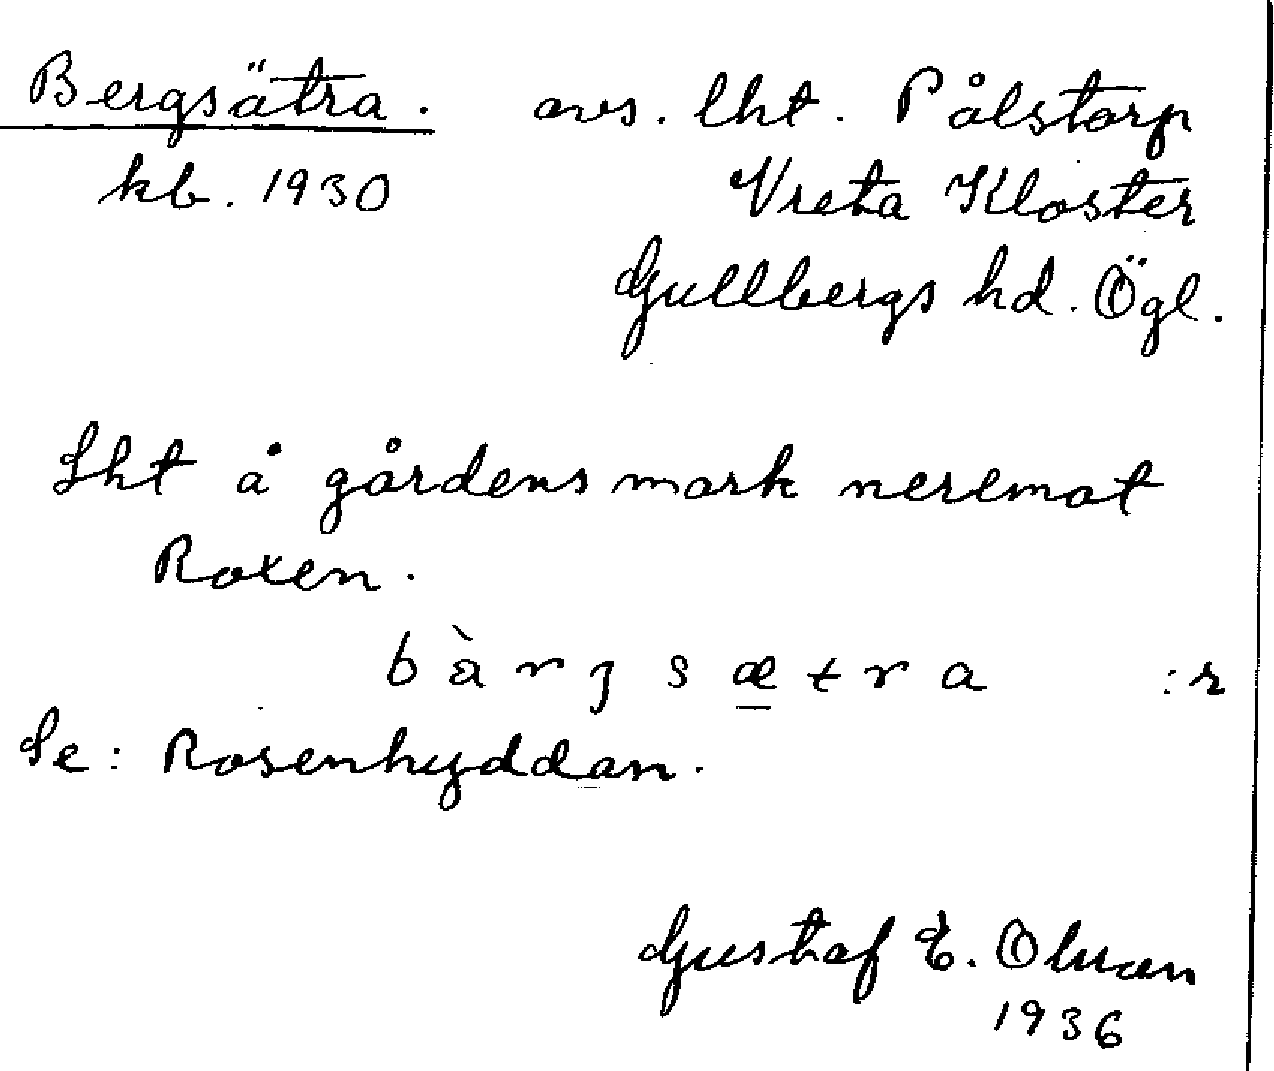 Bergsätra. avs. lht. Pålstorp
kb. 1930 Vreta Kloster
Gullbergs hd. Ögl.
Lht å gårdens mark neremot
Roxen.
bàrȝsætra :r
Se: Rosenhyddan.
Gustaf E. Olman
1936